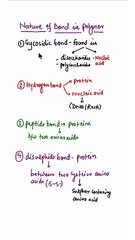 Nature of Bond in Polymer
① Glycosidic bond - found in
- disaccharides - Nucleic acid
- polysaccharides
② Hydrogen bond → protein
→ nucleic acid
(DNA/RNA)
③ peptide bond → proteins
b/w two amino acids
④ disulphide bond - protein
between two cysteine amino
acids (S-S)
Sulphur containing
amino acid